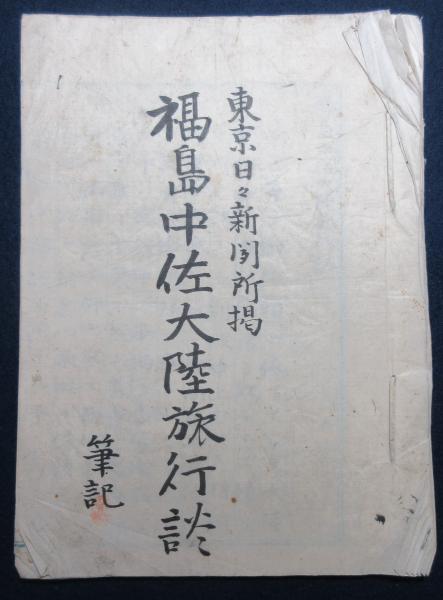 東京日々新聞所掲
福島中佐大陸旅行談
筆記